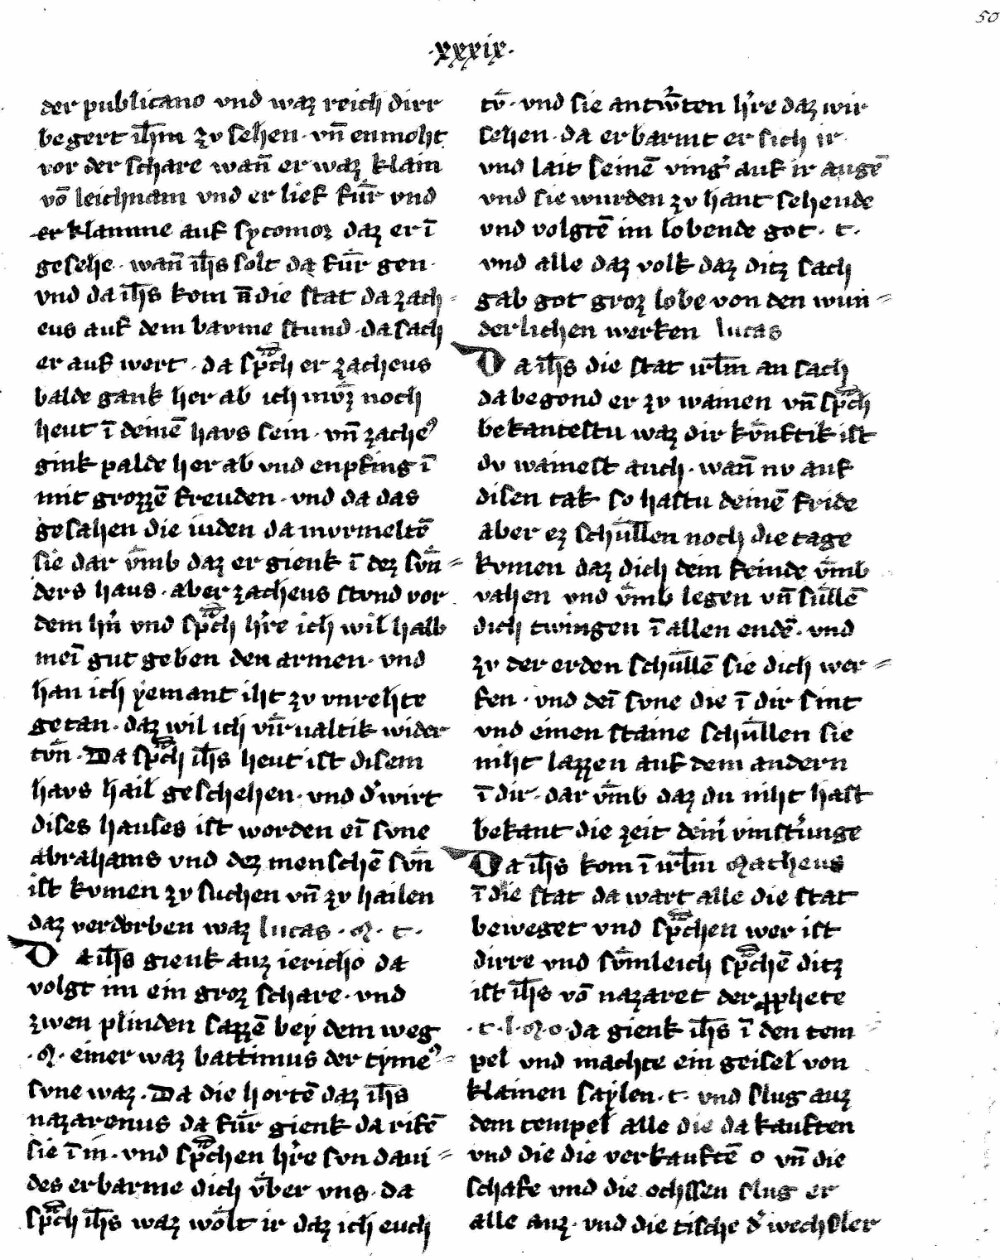 50
·xxxix·
der publicano vnd waz reich dirr
begert ih̄m zv sehen· vn̄ enmoht
vor der schare wan̄ er waz klain
vō leichnam vnd er lief fu̇r vnd
er klamme auf sycomoꝛ daz er ī
gesehe· wan̄ ih̄s solt da fu̇r gen·
vnd da ih̄s kom n̄ die stat da zach=
eus auf dem bavme stund· da sach
er auf wert· da sp̄ch er zacheus
balde gank her ab ich mv̊z noch
heut ī deinē havs sein· vn̄ zache᾽
gink palde her ab vnd enpfing ī
mit grozzē freuden· vnd da das
gesahen die iuden da mvrmeltē
sie dar v̊mb daz er gienk ī dez sv̊n=
ders haus· aber zacheus stvnd vor
dem hn̄ vnd sp̄ch hr᾽e ich wil halb
meī gut geben den armen· vnd
han ich yemant iht zv vnrehte
getan· daz wil ich vir᾽ualtik wider
tv̊n· Da sp̄ch ih̄s heut ist disem
havs hail geschehen· vnd d᾽ wirt
dises hauses ist worden eī svne
abrahams vnd dez menschē sv̊n
ist kvmen zv suchen vn̄ zv hailen
daz verdorben waz lucas· m· t·
Da ih̄s gienk auz iericho da
volgt im ein groz schare· vnd
zwen plinden sazzē bey dem weg
·m· einer waz battimus der tyme᾽=
svne waz· Da die hortē daz ih̄s
nazarenus da fu̇r gienk da rifē
sie ī in· vnd sp̄chen hr᾽e svn daui=
des erbarme dich v̊ber vns· da
sp̄ch ih̄s waz wo̊lt ir daz ich euch
tv̊· vnd sie antw᾽ten hr᾽e daz wir
sehen· da erbarmt er sich ir·
vnd lait seinē ving᾽ auf ir augē
vnd sie wurden zv hant sehende
vnd volgtē im lobende got· t·
vnd alle daz volk daz ditz sach
gab got groz lobe von den wun=
derlichen werken lucas
Da ih̄s die stat irl̄m an sach
da begond er zv wainen vn̄ sp̄ch
bekantestu waz dir kv̊nftik ist
dv wainest auch· wan̄ nv auf
disen tak so hastu deinē fride
aber ez schu̇llen noch die tage
kvmen daz dich dein feinde v̊mb
vahen vnd v̊mb legen vn̄ su̇llē
dich twingen ī allen endē· vnd
zv der erden schu̇llē sie dich wer=
fen· vnd deī svne die ī dir sint
vnd einen staine schu̇llen sie
niht lazzen auf dem andern
ī dir· dar v̊mb daz du niht hast
bekant die zeit dein᾽ vinst᾽unge
Da ih̄s kom ī irl̄m Matheus
ī die stat da wart alle die stat
beweget vnd sp̄chen wer ist
dirre vnd sv̊mleich sp̄chē ditz
ist ih̄s vō nazaret der ꝓphete
·t·l·m·o da gienk ih̄s ī den tem=
pel vnd machte ein geisel von
klainen saylen· t· vnd slug auz
dem tempel alle die da kauften
vnd die die verkauftē o vn̄ die
schafe vnd die ochssen slug er
alle auz· vnd die tische d᾽ wechsler